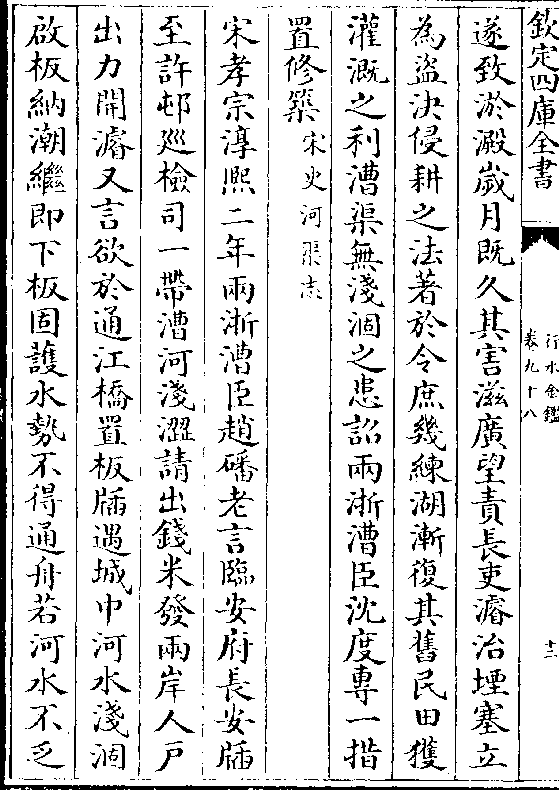 欽定四庫全書
行水金鑑
卷九十八
十二
遂致淤澱歲月既久其害滋廣望責長吏濬治堙塞立
為盜決侵耕之法著於令庶幾練湖漸復其舊民田獲
灌溉之利漕渠無淺涸之患詔兩浙漕臣沈度專一措
置修築宋史河渠志
宋孝宗淳熙二年兩浙漕臣趙磻老言臨安府長安牐
至許邨廵檢司一帶漕河淺澀請出錢米發兩岸人戸
出力開濬又言欲於通江橋置板牐遇城中河水淺涸
啟板納潮繼即下板固護水勢不得通舟若河水不乏